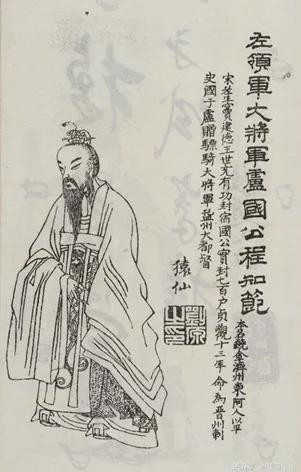 左領軍大將軍盧國公程知節
本名齩金濟州東阿人以平
宋老生竇建德王世充有功封宿國公實封七百户貞觀十三年命為晉州刺
史國于盧贈驃騎大將軍益州大都督
猿仙